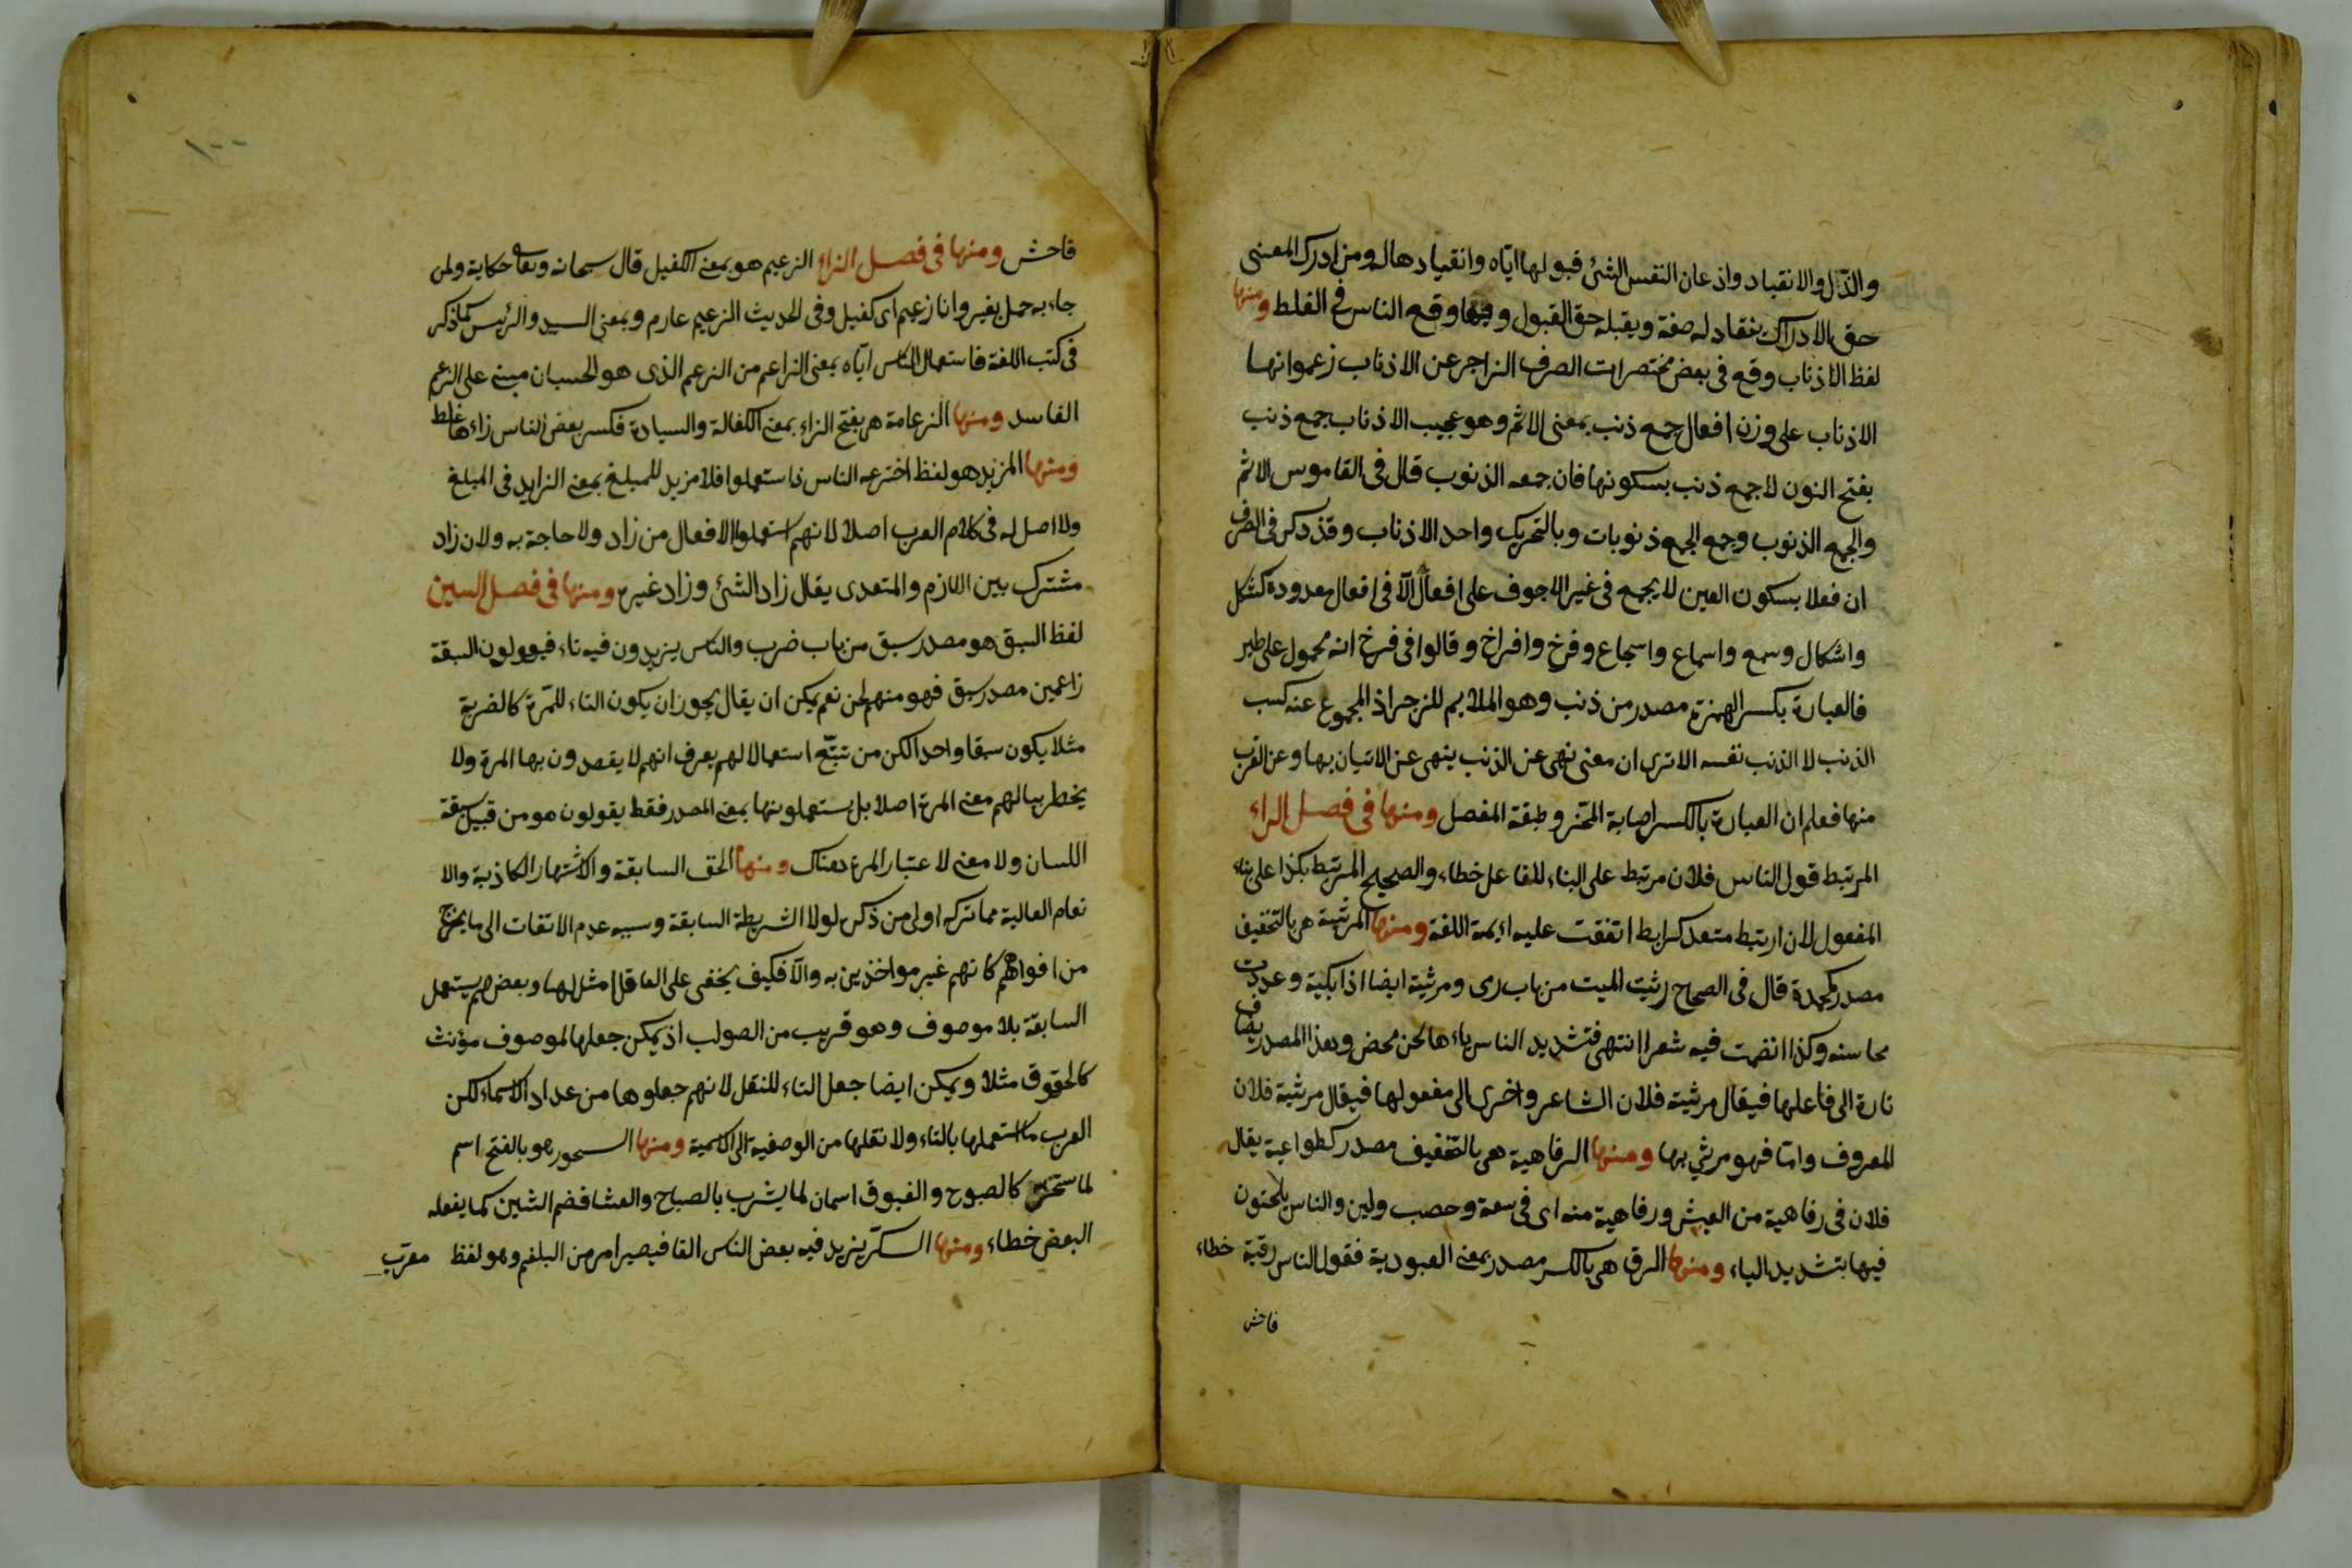 والذل والانقياد واذعان النفس الشئ قبولها اياه وانقيادها له ومن ادرك المعنى
حق الادراك ينقاد له صفة ويقبله حق القبول وفيها وقع الناس فى الغلط ومنها
لفظ الاذناب وقع فى بعض مختصرات الصرف الزاجر عن الاذناب زعموا انها
الاذناب على وزن افعال جمع ذنب بمعنى الاثم وهو عجيب الاذناب جمع ذنب
بفتح النون لا جمع ذنب بسكونها فان جمعه الذنوب قال فى القاموس الاثم
والجمع الذنوب وجمع الجمع ذنوبات وبالتحريك واحد الاذناب وقد ذكر فى الصرف
ان فعلا بسكون العين لا يجمع فى غير الاجوف على افعال الا فى افعال معدودة كشكل
واشكال وسمع واسماع واسجاع وفرخ وافراخ وقالوا فى فرخ انه محمول على طير
فالعبارة بكسر الهمزة مصدر من ذنب وهو الملايم للزجر اذ المجموع عنه كسب
الذنب لا الذنب نفسه الا ترى ان معنى نهى عن الذنب ينهى عن الاتيان بها وعن القرب
منها فعلم ان العبارة بالكسر اصابة المحز وطبقة المفصل ومنها فى فصل الراء
المرتبط قول الناس فلان مرتبط على البناء للفاعل خطاء والصحيح المرتبط بكذا على بناء
المفعول لان ارتبط متعد كرابط اتفقت عليه ائمة اللغة ومنها المرثية هى بالتخفيف
مصدر كمحمدة قال فى الصحاح رثيت الميت من باب رمى ومرثية ايضا اذا بكيته وعددت
محاسنه وكذا انضمت فيه شعرا انتهى فتشديد الناس ياءها لحن محض وهذا المصدر يضاف
تارة الى فاعلها فيقال مرثية فلان الشاعر واخرى الى مفعولها فيقال مرثية فلان
المعروف واما فهو مرثي بها ومنها الرفاهية هى بالتخفيف مصدر كطواعية يقال
فلان فى رفاهية من العيش ورفاهية منه اى فى سعة وخصب ولين والناس يلحنون
فيها بتشديد الياء ومنها الرق هى بالكسر مصدر بمعنى العبودية فقول الناس رقية خطاء
فاحش
١٠٠
فاحش ومنها فى فصل الزاء الزعيم هو بمعنى الكفيل قال سبحانه وتعالى حكاية ولمن
جاء به حمل بعير وانا زعيم اى كفيل وفى الحديث الزعيم غارم وبمعنى السيد والرئيس كما ذكر
فى كتب اللغة فاستعمال الناس اياه بمعنى الزاعم من الزعم الذى هو الحسبان مبنى على الزعم
الفاسد ومنها الزعامة هى بفتح الزاء بمعنى الكفالة والسيادة فكسر بعض الناس زاءها غلط
ومنها المزيد هو لفظ اخترعه الناس فاستعملوا فلا مزيد للمبلغ بمعنى الزايد فى المبلغ
ولا اصل له فى كلام العرب اصلا لانهم استعملوا الافعال من زاد ولا حاجة به ولان زاد
مشترك بين اللازم والمتعدى يقال زاد الشئ وزاد غيره ومنها فى فصل السين
لفظ السبق هو مصدر سبق من باب ضرب والناس يزيدون فيه تاء فيقولون السبقة
زاعمين مصدر سبق فهو منهم لحن نعم يمكن ان يقال يجوز ان يكون التاء للمرة كالضربة
مثلا يكون سبقا واحدا لكن من تتبع استعمالا لهم يعرف انهم لا يقصدون بها المرة ولا
يخطر ببالهم معنى المرة اصلا بل يستعملونها بمعنى المصدر فقط يقولون هو من قبيل سبقة
اللسان ولا معنى لاعتبار المرة هناك ومنها الحق السابقة والاشتهار الكاذبة والا
نعام العالية مما تركه اولى من ذكره لولا الشريطة السابقة وسببه عدم الالتفات الى ما يخرج
من افواههم كانهم غير مواخذين به والا فكيف يخفى على العاقل امثالها وبعضهم يستعمل
السابقة بلا موصوف وهو قريب من الصواب اذ يمكن جعلها لموصوف مؤنث
كالحقوق مثلا ويمكن ايضا جعل التاء للنقل لانهم جعلوها من عداد الاسماء لكن
العرب ما استعملها بالتاء ولا نقلها من الوصفية الى الاسمية ومنها السحور هو بالفتح اسم
لما يتسحر كالصبوح والغبوق اسمان لما يشرب بالصباح والعشا فضم الشين كما يفعله
البعض خطاء ومنها السكر يزيد فيه بعض الناس الفا فيصير امر من البلغم وهو لفظ معرب